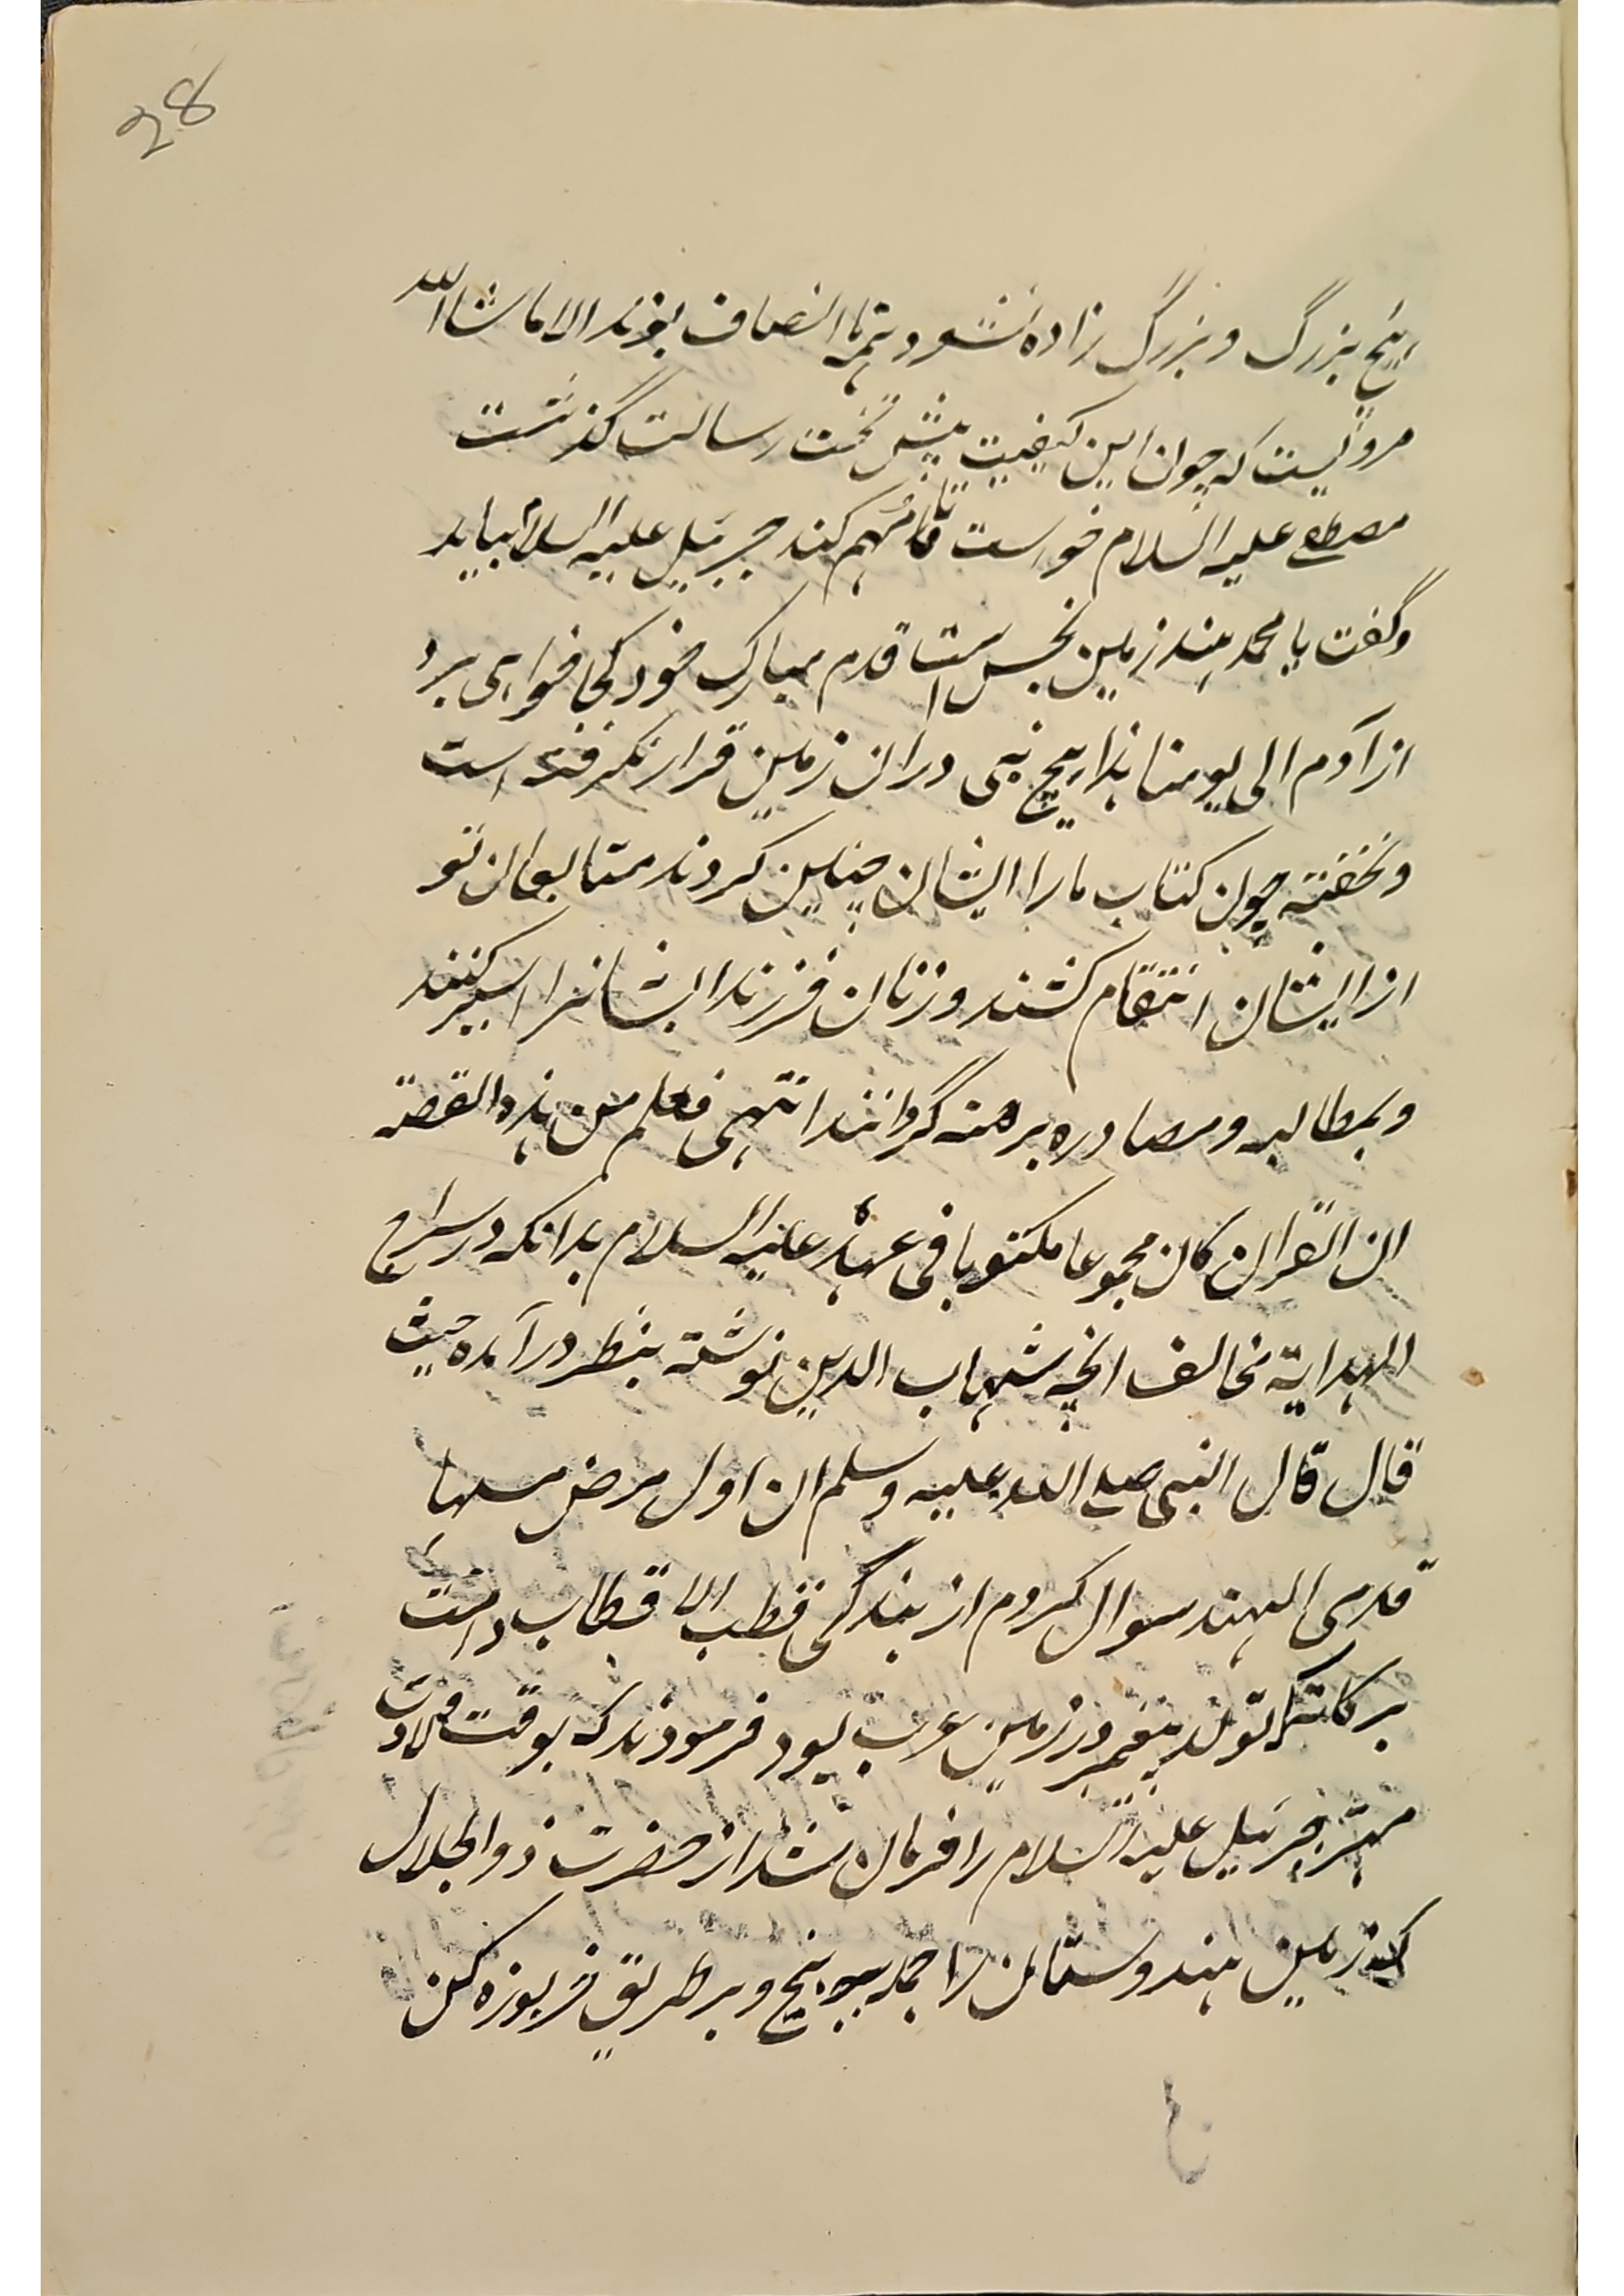 28
هیچ بزرگ و بزرگ زاده نشود همه نا انصاف بوند الا ما شا الله
مرویست که چون این کیفیت پیش تخت رسالت گذشت
مصطفے علیه السلام خواست تا متهم کند جبرئیل علیه السلام بیاید
و گفت یا محمد هند زمین نجس است قدم مبارک خود کجا خواهی برد
از آدم الی یومنا هذا هیچ نبی در ان زمین قرار نگرفته است
و نخفته چون کتاب ما را ایشان چنین کردند متابعان تو
از ایشان انتقام کشند و زنان فرزند ایشانرا اسیر کنند
و بمطالبه و مصادره برهنه گردانند انتهی فعلم من هذه القصة
ان القران کان مجموعا مکتوبا فی عهده علیه السلام بدانکه در سراج
الهدایة مخالف انچه شهاب الدین نوشته بنظر در آمده حیث
قال قال النبی صلے الله علیه وسلم ان اول مرض مسها
قدمی الهند سوال کردم از بندگی قطب الاقطاب دامت
برکاته که تولد پیغمبر در زمین عرب بود فرمودند که بوقت ولادت
مهتر جبرئیل علیه السلام را فرمان شد از حضرت ذو الجلال
که زمین هندوستان را جمله به پیچ و بر طریق خربوزه کن